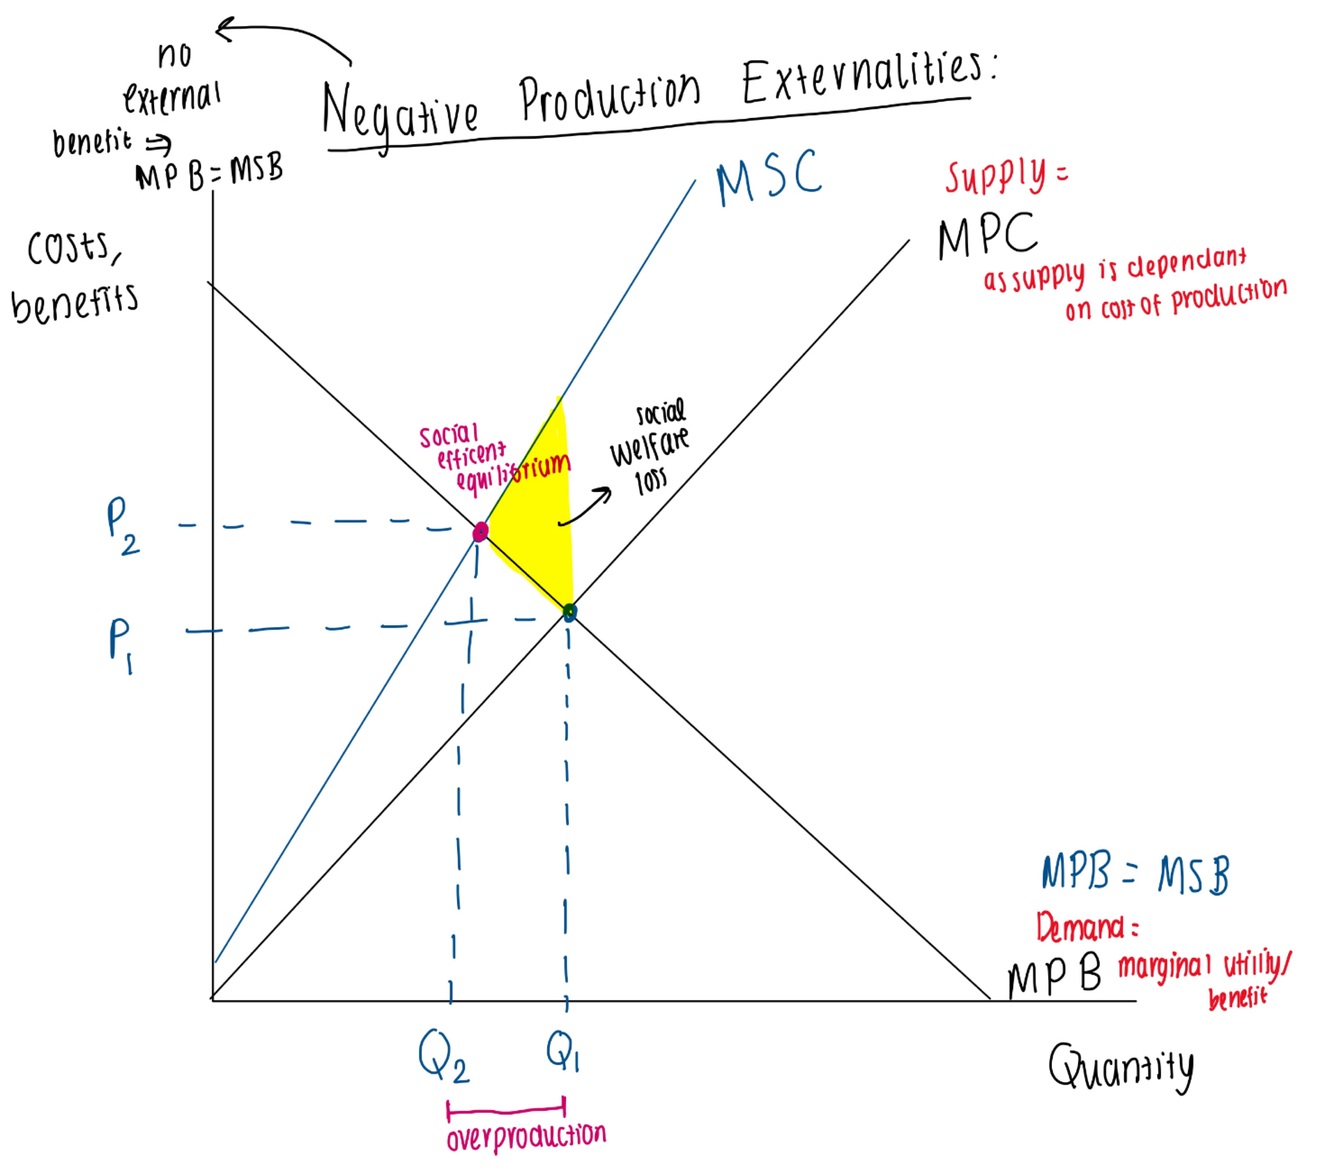 no
external
benefit ⇒
MPB=MSB
Negative Production Externalities:
costs,
benefits
MSC
Supply =
MPC
as supply is dependant
on cost of production
social
efficent
equilibrium
social
welfare
loss
P2
P1
MPB = MSB
Demand =
MPB marginal utility/
benefit
Q2 Q1
Quantity
overproduction